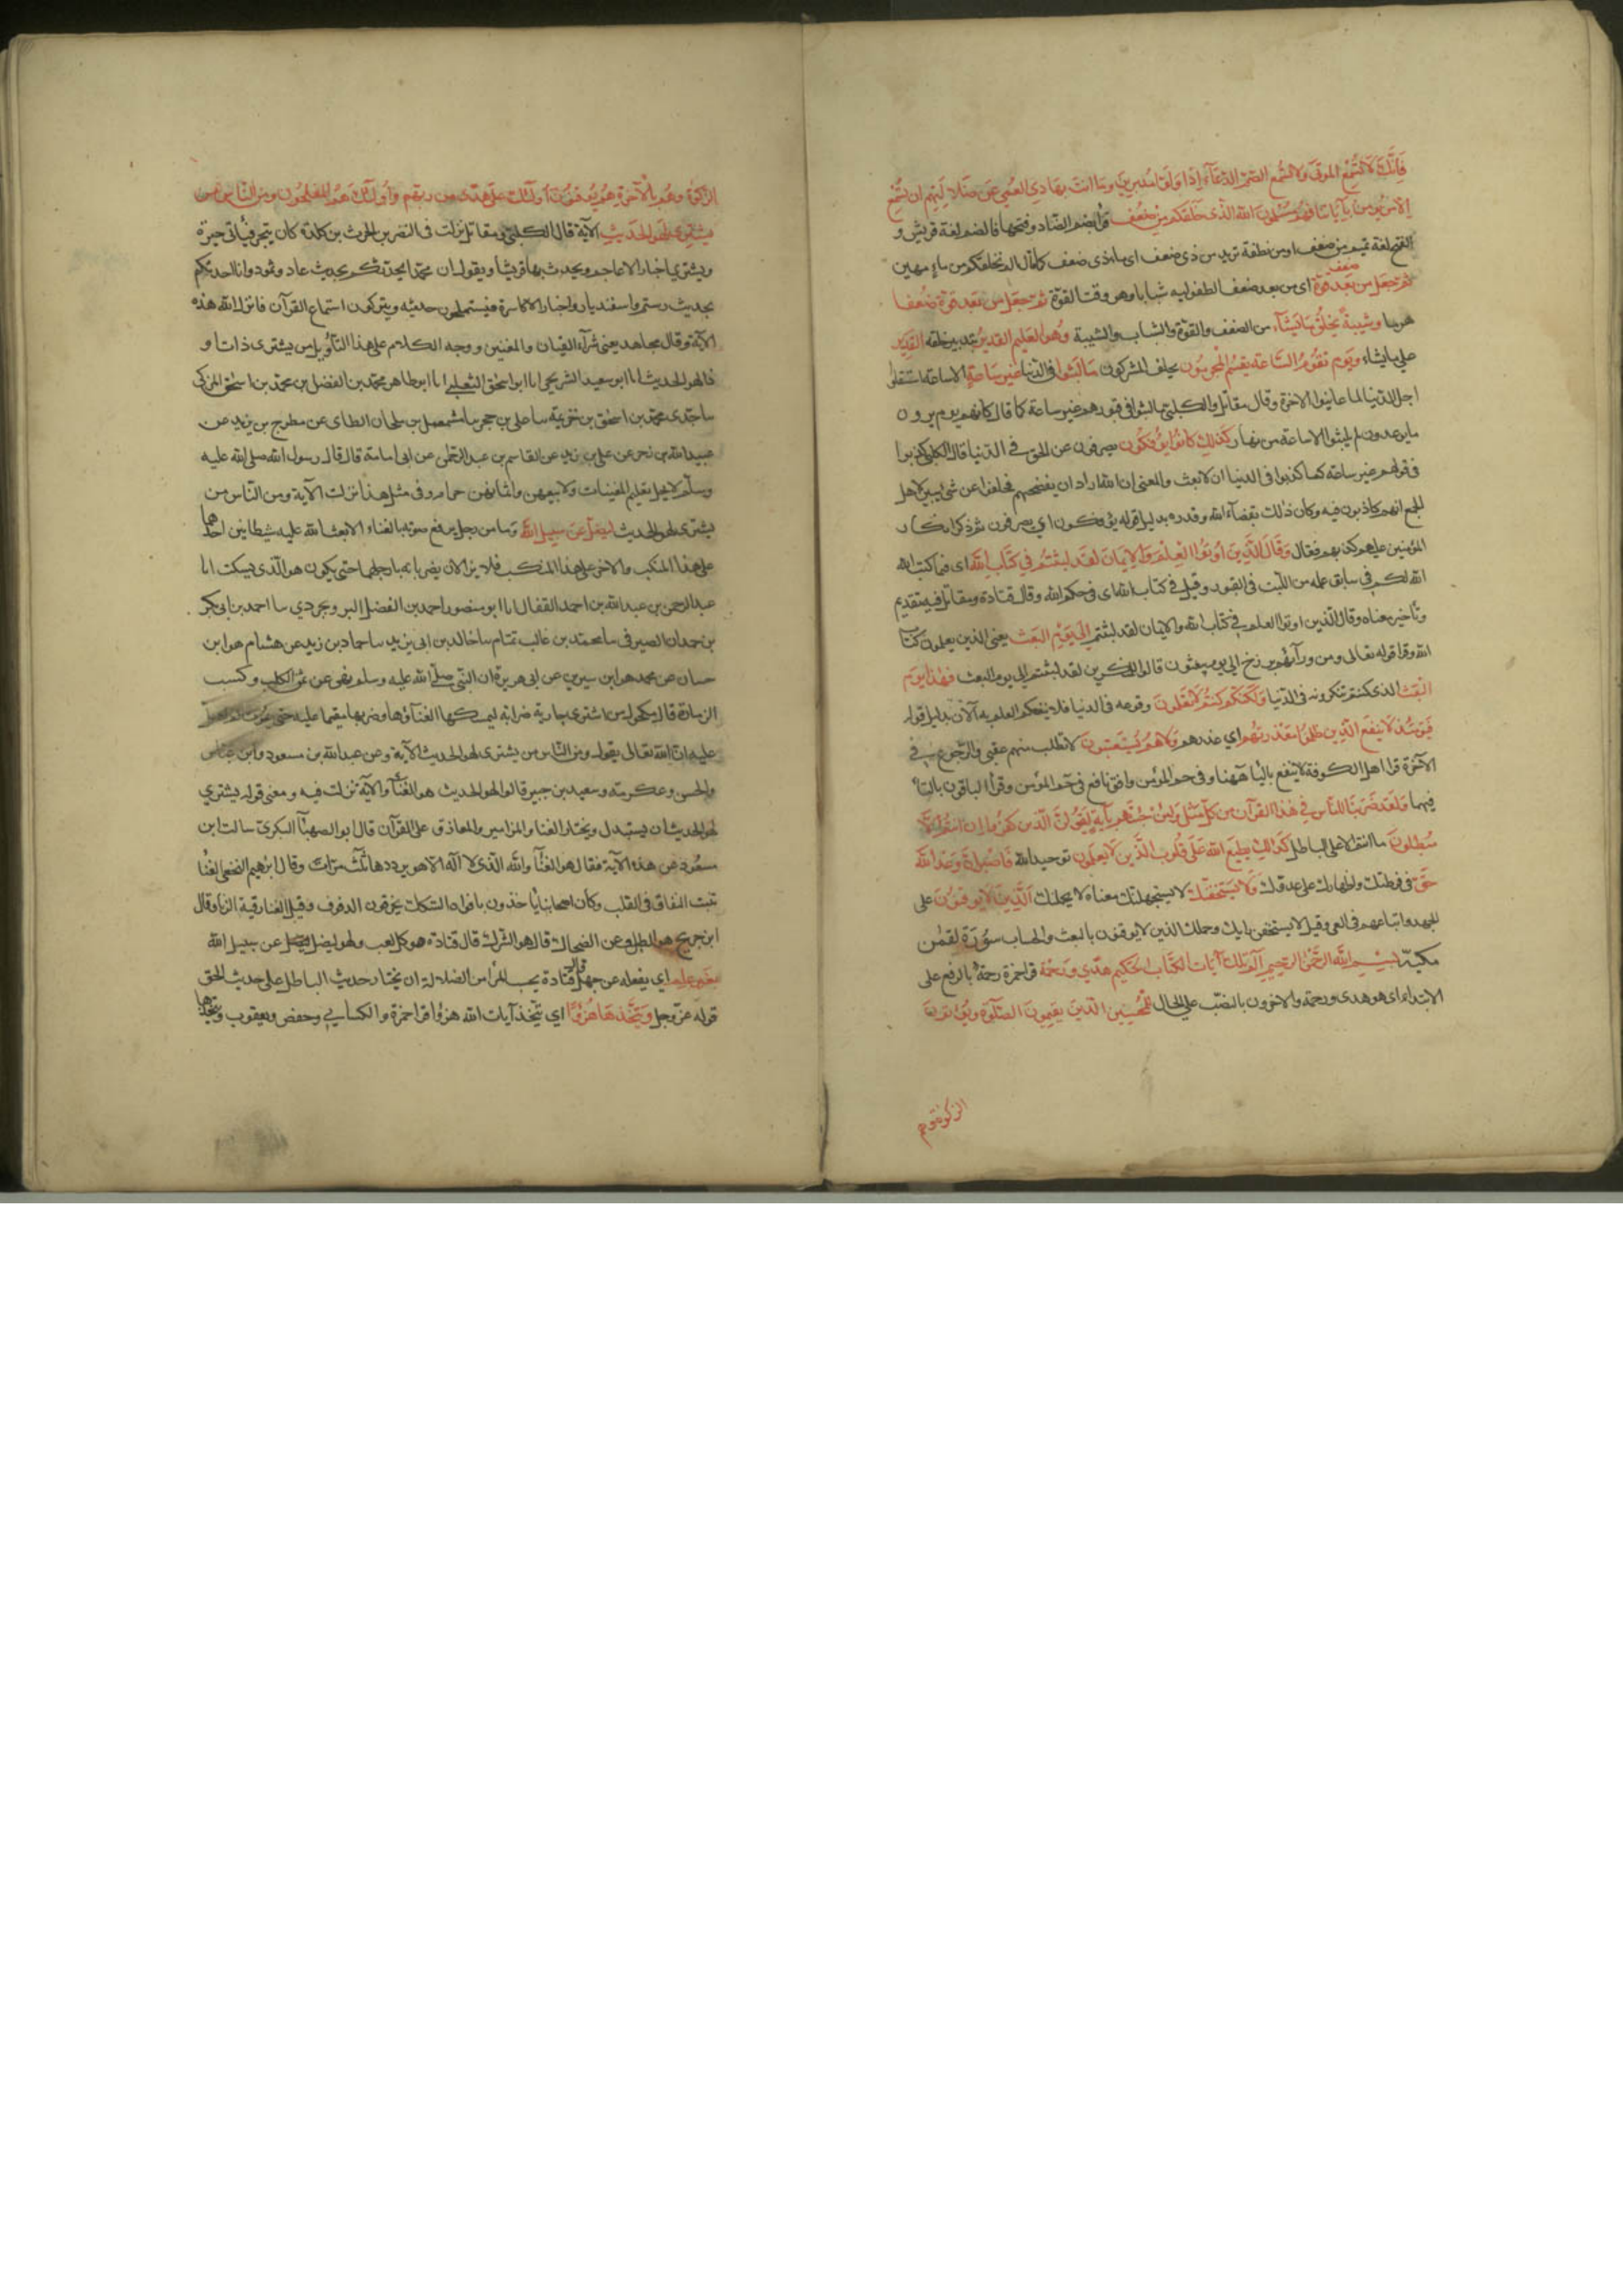 فَإِنَّكَ لَا تُسْمِعُ الموتَى وَلا تُسْمِع الصمّ الدُّعَآءَ إِذَا وَلَّوا مُدبِرِينَ وما انتَ بِهَادِي العُمْي عَن ضَلالَتِهِم ان تُسْمِعُ
الّا من يُؤمن بِآيَاتِنَا فهُم مُسْلِمُونَ الله الذى خَلقَكم مِنْ ضعْف قرئ بضم الضاد وفتحها فالضم لغة قريش و
الفتح لغة تميم من ضعف اى من نطفة يريد من ذى ضعف اى ماء ذى ضعف كما قال الم نخلقكم من ماء مهين
ثم جعَل من بعد ضعف قوة اى من بعد ضعف الطفولية شبابا وهو وقت القوة ثم جعَل من بعد قوة ضعفا
هرما وشيبةً يَخلُقُ مَا يَشَآء من الضعف والقوة والشباب والشيبة وَهُوَ العَليم القدير بتدبير خلقه القدير
على ما يشاء ويَوم تقُومُ السَّاعة يقسِمُ المجرمُون يحلف المشركون مَا لَبثوا فى الدنيا غير سَاعةٍ الا ساعة استقلوا
اجل الدنيا لما عاينوا الاخرة وقال مقاتل والكلبى ما لبثوا فى قبورهم غير ساعة كما قال كانهم يوم يرون
ما يوعدون لم يلبثوا الا ساعة من نهار كذلِك كانوُا يُؤفكُون يصرفون عن الحق فى الدنيا قال الكلبى كذبوا
فى قولهم غير ساعة كما كذبوا فى الدنيا ان لا بعث والمعنى ان الله اراد ان يفضحهم فحلفوا على شئ يتبين لاهل
الجمع انهم كاذبون فيه وكان ذلك بقضآء الله وقدره بدليل قوله يؤفكون اي يصرفون ثم ذكر انكار
المؤمنين عليهم كذبهم فقال وَقَالَ الَّذِينَ اُوتُوا العِلْمَ وَالاِيمَانَ لقَد لَبثتُمْ فى كتَابِ الله اى فيما كتب الله
الله لكم فى سابق علمه من اللبث فى القبور وقيل فى كتاب الله اى فى حكم الله وقال قتادة ومقاتل فيه تقديم
وتأخير معناه وقال الذين اوتوا العلم فى كتاب الله والايمان لقد لبثتم الى يَوْمِ البَعْث يعنى الذين يعلمون كتاب
الله وقرأ قوله تعالى ومن ورآئهم برزخ الى يوم يبعثون قالوا للمنكرين لقد لبثتم الى يوم البعث فهذا يَوم
البَعْث الذى كنتم تنكرونه فى الدنيا وَلكنّكم كنتُم لَا تعْلَمُونَ وقوعه فى الدنيا فلا ينفعكم العلم به الآن بدليل قوله
فَيَومَئذٍ لَا ينفَع الذِّين ظلَمُوا مَعْذرتُهُم اي عذرهم وَلَا هُمْ يُسْتَعْتَبُونَ لا تطلب منهم عتبى والرجوع فى
الآخرة قرا اهل الكوفة لا ينفع باليآ هٰهنا وفى حم المؤمن وافق نافع فى حم المؤمن وقرأ الباقون بالتآ
فيهما ولقَد ضَرَبْنَا للنّاس فى هٰذا القرآن من كلّ مثَل ولئِن جئتَهم بآية ليَقُولَنّ الّذين كفَرُوا اِن انتم الّا
مُبطلونَ ما انتم الا على الباطل كذلك يطبَع الله عَلى قُلُوب الذَّين لَا يعلَمُون توحيد الله فَاصْبِر إنَّ وَعْدَ اللهِ
حَقّ فى نصرتك واظهارك على عدوك وَلَا يَسْتَخفنَّك لا يستجهلنك معناه لا يحملنك الَّذِينَ لَا يُوقِنُونَ على
الجهل واتباعهم فى الغى وقيل لا يستخفن رايك وحلمك الذين لا يوقنون بالبعث والحساب سُورَة لقمٰن
مكيّة بِسْمِ اللهِ الرَّحْمٰنِ الرَّحِيمِ الٓمٓ تلكَ آيَات الكتَابِ الحَكيم هدًى وَرَحْمة قرا حمزة رحمةٌ بالرفع على
الابتداء اى هو هدى ورحمة والاخرون بالنصب على الحال لِلْمُحْسِنِينَ الَّذِينَ يقيمُونَ الصَّلٰوة وَيُؤتُونَ
الزكوة وهم
الزكوةَ وهُم بالآخرةِ هُمْ يُوقنُونَ أولٓئك علَى هُدًى من ربّهِم وَأُولٓئكَ هُمُ المفلحُون ومن النّاسِ من
يشتَرى لَهْوَ الحَدِيثِ الآية قال الكلبى ومقاتل نزلت فى النضر بن الحرث بن كلدة كان يتجر فيأتى حيرة
ويشترى اخبار الاعاجم ويحدث بها قريشا ويقول ان محمدا يحدثكم بحديث عاد وثمود وانا احدثكم
بحديث رستم واسفنديار واخبار الاكاسرة فيستملحون حديثه ويتركون استماع القرآن فانزل الله هذه
الآية وقال مجاهد يعنى شرآء القيان والمغنين ووجه الكلام على هذا التأويل من يشترى ذات او
ذا لهو الحديث انا ابو سعيد الشريحى انا ابو اسحٰق الثعلبى انا ابو طاهر محمد بن الفضل بن محمد بن اسحٰق المزكى
سا جدى محمد بن اسحٰق بن خزيمة سا على بن حجر سا مشمعل بن ملحان الطاى عن مطرح بن يزيد عن
عبيد الله بن زحر عن على بن يزيد عن القاسم بن عبد الرحمٰن عن ابى امامة قال قال رسول الله صلى الله عليه
وسلم لا يحل تعليم المغنيات ولا بيعهن واثمانهن حرام وفى مثل هذا نزلت الآية ومن الناس من
يشترى لهو الحديث ليضلّ عَن سبيل الله وما من رجل يرفع صوته بالغناء الا بعث الله عليه شيطانين احدهما
على هذا المنكب والاخر على هذا المنكب فلا يزالان يضربانه بارجلهما حتى يكون هو الّذى يسكت انا
عبد الرحمن بن عبد الله بن احمد القفال انا ابو منصور احمد بن الفضل البروجردي سا احمد بن ابى بكر
بن حمدان الصيرفى سا محمد بن غالب تمتام سا خالد بن ابى يزيد سا حماد بن زيد عن هشام هو ابن
حسان عن محمد هو ابن سيرين عن ابى هريرة ان النبى صلى الله عليه وسلم نهى عن ثمن الكلب وكسب
الزمارة قال مكحول من اشترى جارية ضرابة ليمسكها لغنآئها وضربها مقيما عليه حتى يموت لم اصل
عليه ان الله تعالى يقول ومن الناس من يشترى لهو الحديث الآية وعن عبد الله بن مسعود وابن عباس
والحسن وعكرمة وسعيد بن جبير قالوا لهو الحديث هو الغنآ والآية نزلت فيه ومعنى قوله يشتري
لهو الحديث ان يستبدل ويختار الغنا والمزامير والمعازف على القرآن قال ابو الصهبآ البكرى سالت ابن
مسعُود عن هذه الآية فقال هو الغنآ والله الّذى لا اله الا هو يرددها ثلٰث مرّات وقال ابرٰهيم النخعى الغنا
تنبت النفاق فى القلب وكان اصحابنا ياخذون بافواه السكك يخرقون الدفوف وقيل الغنا رقية الزنا وقال
ابن جريج هو الطبل وعن الضحاك قال هو الشرك قال قتادة هو كل لعب ولهو ليضل عن سبيل الله
بغَيرِ عِلمٍ اي يفعله عن جهل قال قتادة بحسب المرأ من الضلالة ان يختار حديث الباطل على حديث الحق
قوله عزّ وجل وَيَتَّخِذَهَا هُزُوًا اي يتّخذ آيات الله هزؤا قرا حمزة والكسايى وحفص ويعقوب ويتخذها